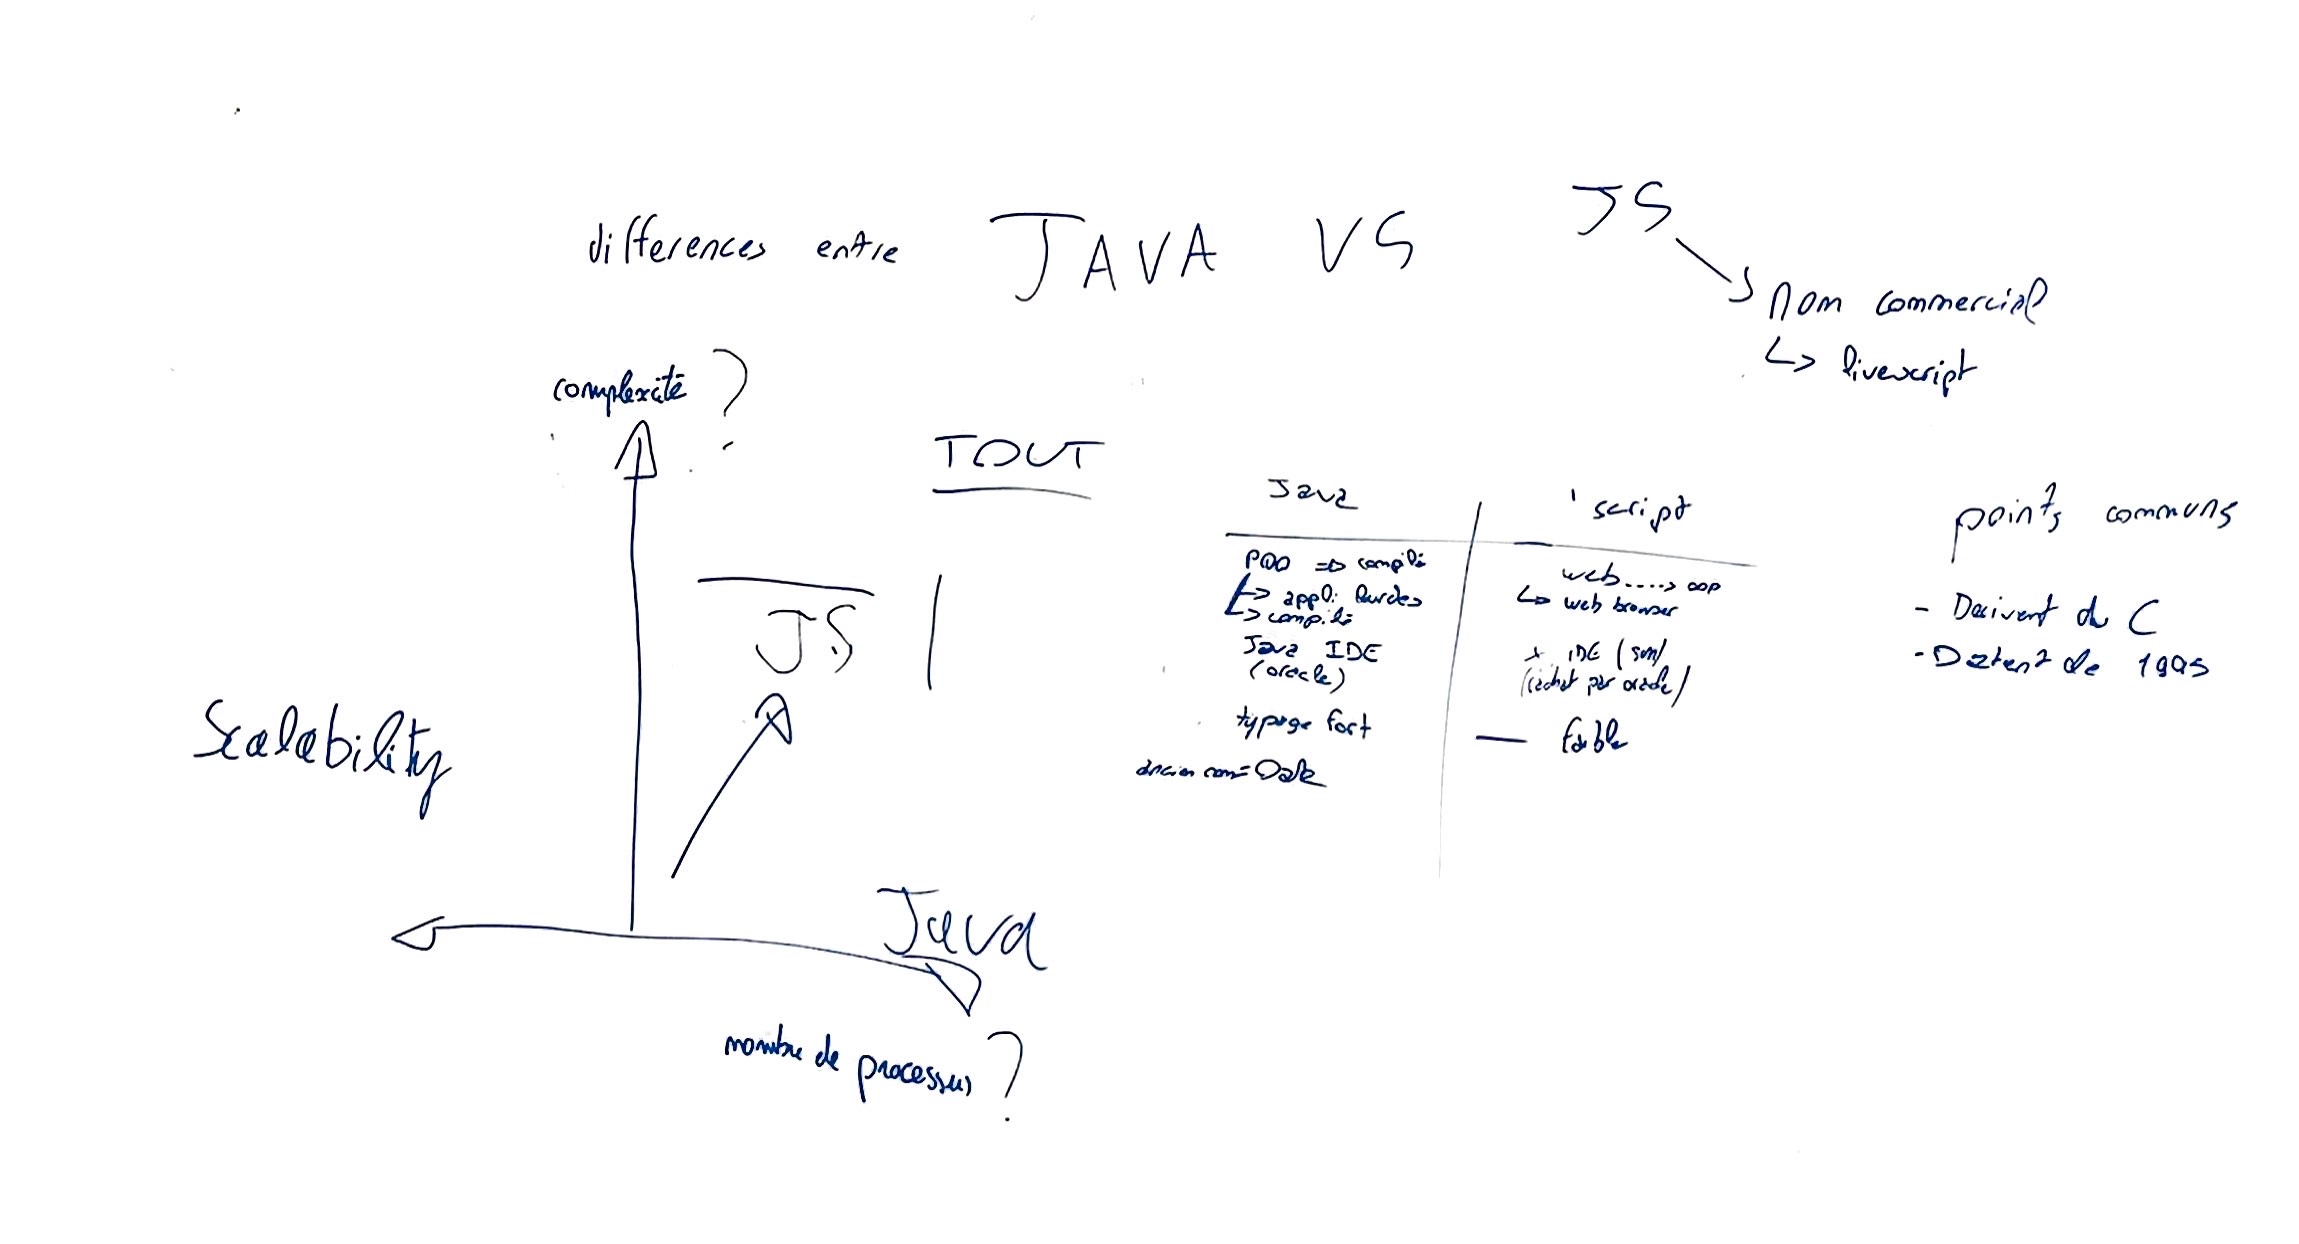 differences entre JAVA VS JS
nom commercial
livescript
complexité ?
TOUT
JS
Scalability
Java
nombre de processus ?
Java
POO => compilé
appli lourdes
compilé
Java IDE
(oracle)
typage fort
ancien nom = Oak
script
web.....> oop
web browser
IDE (sun)
(rachat par oracle)
— faible
points communs
- Derivent du C
- Datent de 1995